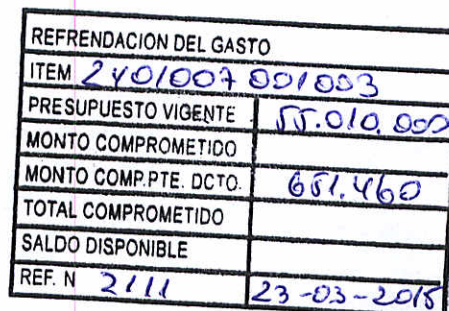 REFRENDACION DEL GASTO
ITEM 2401007 001003
PRESUPUESTO VIGENTE 55.010.000
MONTO COMPROMETIDO
MONTO COMP.PTE. DCTO. 651.460
TOTAL COMPROMETIDO
SALDO DISPONIBLE
REF. N 2111 23-03-2015